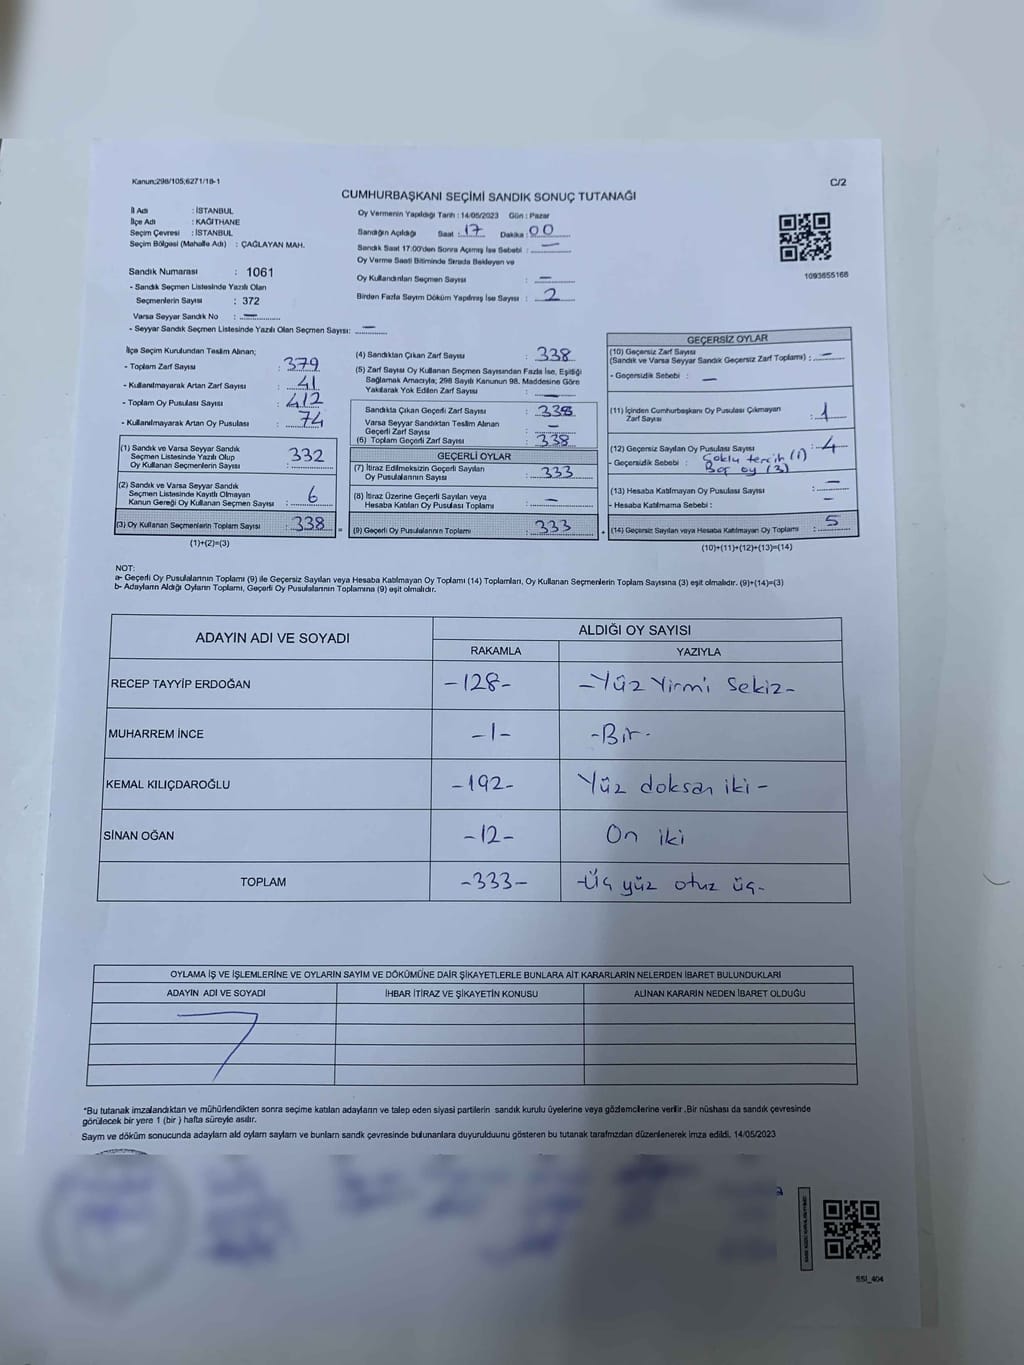 Kanun:298/105;6271/18-1
C/2
CUMHURBAŞKANI SEÇİMİ SANDIK SONUÇ TUTANAĞI
İl Adı : İSTANBUL
İlçe Adı : KAĞITHANE
Seçim Çevresi : İSTANBUL
Seçim Bölgesi (Mahalle Adı) : ÇAĞLAYAN MAH.
Sandık Numarası : 1061
- Sandık Seçmen Listesinde Yazılı Olan
Seçmenlerin Sayısı : 372
Varsa Seyyar Sandık No : —
- Seyyar Sandık Seçmen Listesinde Yazılı Olan Seçmen Sayısı: —
Oy Vermenin Yapıldığı Tarih : 14/05/2023 Gün : Pazar
Sandığın Açıldığı Saat : 17 Dakika : 00
Sandık Saat 17:00'den Sonra Açılmış İse Sebebi : —
Oy Verme Saati Bitiminde Sırada Bekleyen ve
Oy Kullandırılan Seçmen Sayısı : —
Birden Fazla Sayım Döküm Yapılmış İse Sayısı : 2
1093655168
İlçe Seçim Kurulundan Teslim Alınan;
- Toplam Zarf Sayısı : 379
- Kullanılmayarak Artan Zarf Sayısı : 41
- Toplam Oy Pusulası Sayısı : 412
- Kullanılmayarak Artan Oy Pusulası : 74
(1) Sandık ve Varsa Seyyar Sandık
Seçmen Listesinde Yazılı Olup
Oy Kullanan Seçmenlerin Sayısı : 332
(2) Sandık ve Varsa Seyyar Sandık
Seçmen Listesinde Kayıtlı Olmayan
Kanun Gereği Oy Kullanan Seçmen Sayısı : 6
(3) Oy Kullanan Seçmenlerin Toplam Sayısı : 338
(1)+(2)=(3)
(4) Sandıktan Çıkan Zarf Sayısı : 338
(5) Zarf Sayısı Oy Kullanan Seçmen Sayısından Fazla İse, Eşitliği
Sağlamak Amacıyla; 298 Sayılı Kanunun 98. Maddesine Göre
Yakılarak Yok Edilen Zarf Sayısı : —
Sandıkta Çıkan Geçerli Zarf Sayısı : 338
Varsa Seyyar Sandıktan Teslim Alınan
Geçerli Zarf Sayısı : —
(6) Toplam Geçerli Zarf Sayısı : 338
GEÇERLİ OYLAR
(7) İtiraz Edilmeksizin Geçerli Sayılan
Oy Pusulasının Sayısı : 333
(8) İtiraz Üzerine Geçerli Sayılan veya
Hesaba Katılan Oy Pusulası Toplamı : —
= (9) Geçerli Oy Pusulalarının Toplamı : 333
GEÇERSİZ OYLAR
(10) Geçersiz Zarf Sayısı
(Sandık ve Varsa Seyyar Sandık Geçersiz Zarf Toplamı) : —
- Geçersizlik Sebebi : —
(11) İçinden Cumhurbaşkanı Oy Pusulası Çıkmayan
Zarf Sayısı : 1
(12) Geçersiz Sayılan Oy Pusulası Sayısı : 4
- Geçersizlik Sebebi : Çoklu tercih (1)
Boş oy (3)
(13) Hesaba Katılmayan Oy Pusulası Sayısı : —
- Hesaba Katılmama Sebebi : —
+ (14) Geçersiz Sayılan veya Hesaba Katılmayan Oy Toplamı : 5
(10)+(11)+(12)+(13)=(14)
NOT:
a- Geçerli Oy Pusulalarının Toplamı (9) ile Geçersiz Sayılan veya Hesaba Katılmayan Oy Toplamı (14) Toplamları, Oy Kullanan Seçmenlerin Toplam Sayısına (3) eşit olmalıdır. (9)+(14)=(3)
b- Adayların Aldığı Oyların Toplamı, Geçerli Oy Pusulalarının Toplamına (9) eşit olmalıdır.
ADAYIN ADI VE SOYADI
ALDIĞI OY SAYISI
RAKAMLA YAZIYLA
RECEP TAYYİP ERDOĞAN -128- -Yüz Yirmi Sekiz-
MUHARREM İNCE -1- -Bir-
KEMAL KILIÇDAROĞLU -192- Yüz doksan iki -
SİNAN OĞAN -12- On iki
TOPLAM -333- -Üç yüz otuz üç-
OYLAMA İŞ VE İŞLEMLERİNE VE OYLARIN SAYIM VE DÖKÜMÜNE DAİR ŞİKAYETLERLE BUNLARA AİT KARARLARIN NELERDEN İBARET BULUNDUKLARI
ADAYIN ADI VE SOYADI İHBAR İTİRAZ VE ŞİKAYETİN KONUSU ALINAN KARARIN NEDEN İBARET OLDUĞU
*Bu tutanak imzalandıktan ve mühürlendikten sonra seçime katılan adayların ve talep eden siyasi partilerin sandık kurulu üyelerine veya gözlemcilerine verilir .Bir nüshası da sandık çevresinde
görülecek bir yere 1 (bir ) hafta süreyle asılır.
Sayım ve döküm sonucunda adayların ald oyların sayların ve bunların sandk çevresinde bulunanlara duyurulduunu gösteren bu tutanak tarafmzdan düzenlenerek imza edildi. 14/05/2023
SSI_404